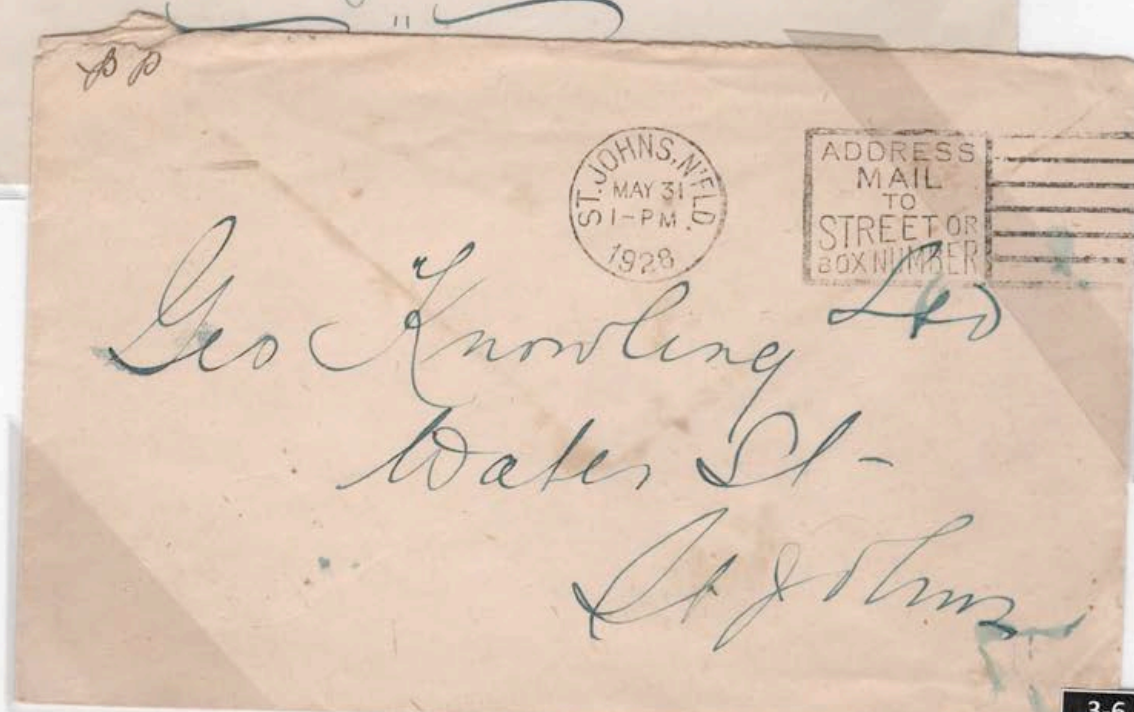 ST. JOHNS, N'FLD.
MAY 31
1-PM
1928
ADDRESS
MAIL
TO
STREET OR
BOX NUMBER
Geo Knowling Ltd
Water St-
St Johns
3-6